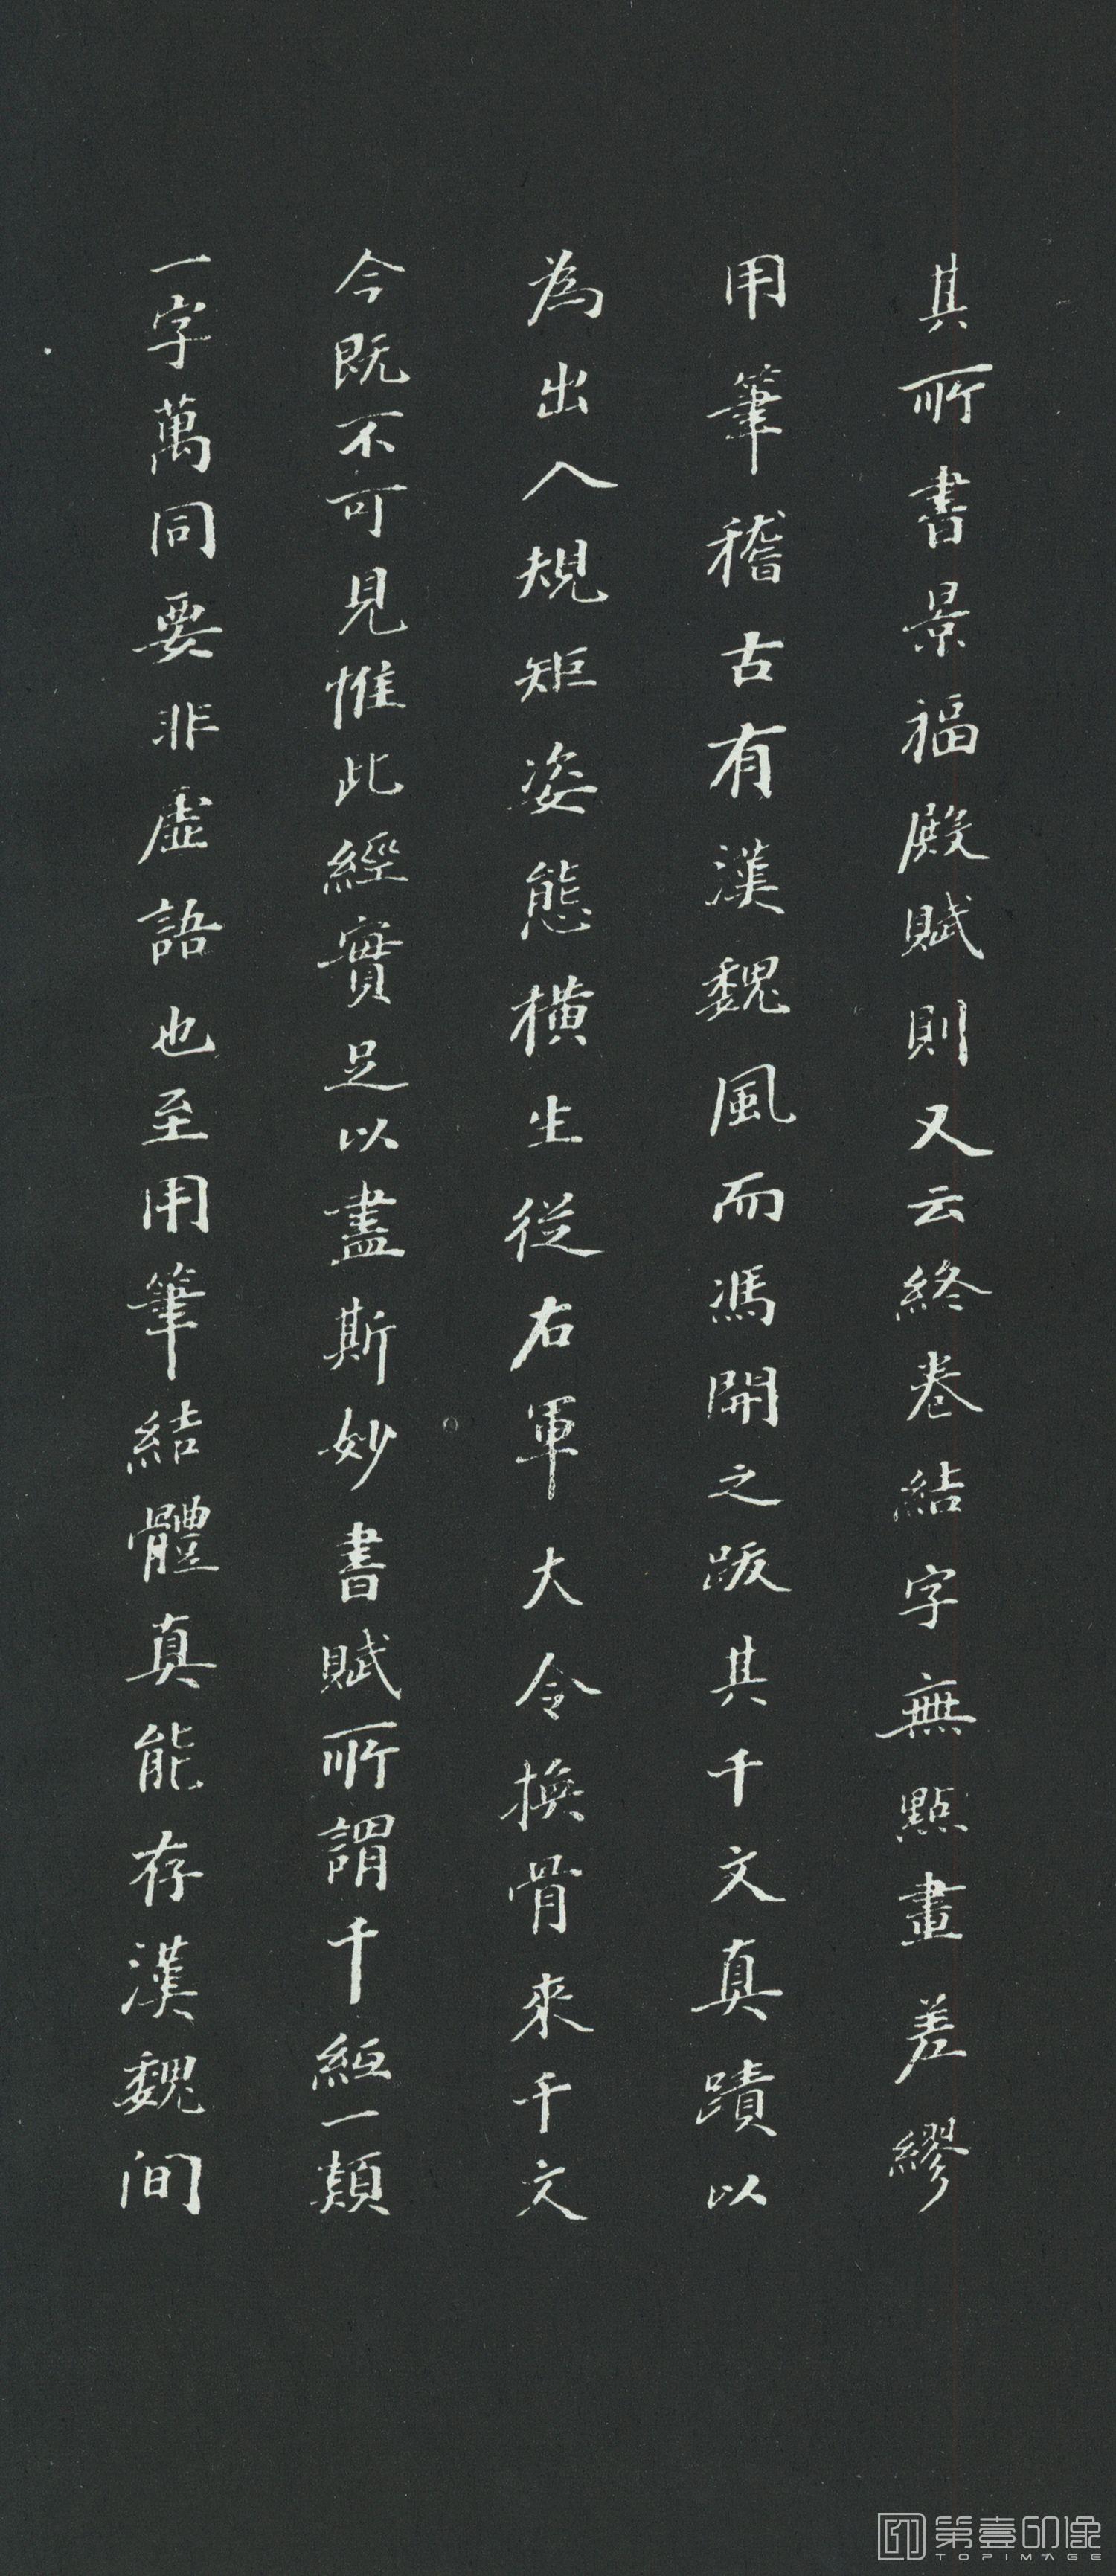 其所書景福殿賦則又云終卷結字無點畫差繆
用筆稽古有漢魏風而馮開之跋其千文真蹟以
為出入規矩姿態橫生從右軍大令換骨來千文
今既不可見惟此經實足以盡斯妙書賦所謂千絙一類
一字萬同要非虛語也至用筆結體真能存漢魏間
第壹印像
TOPIMAGE